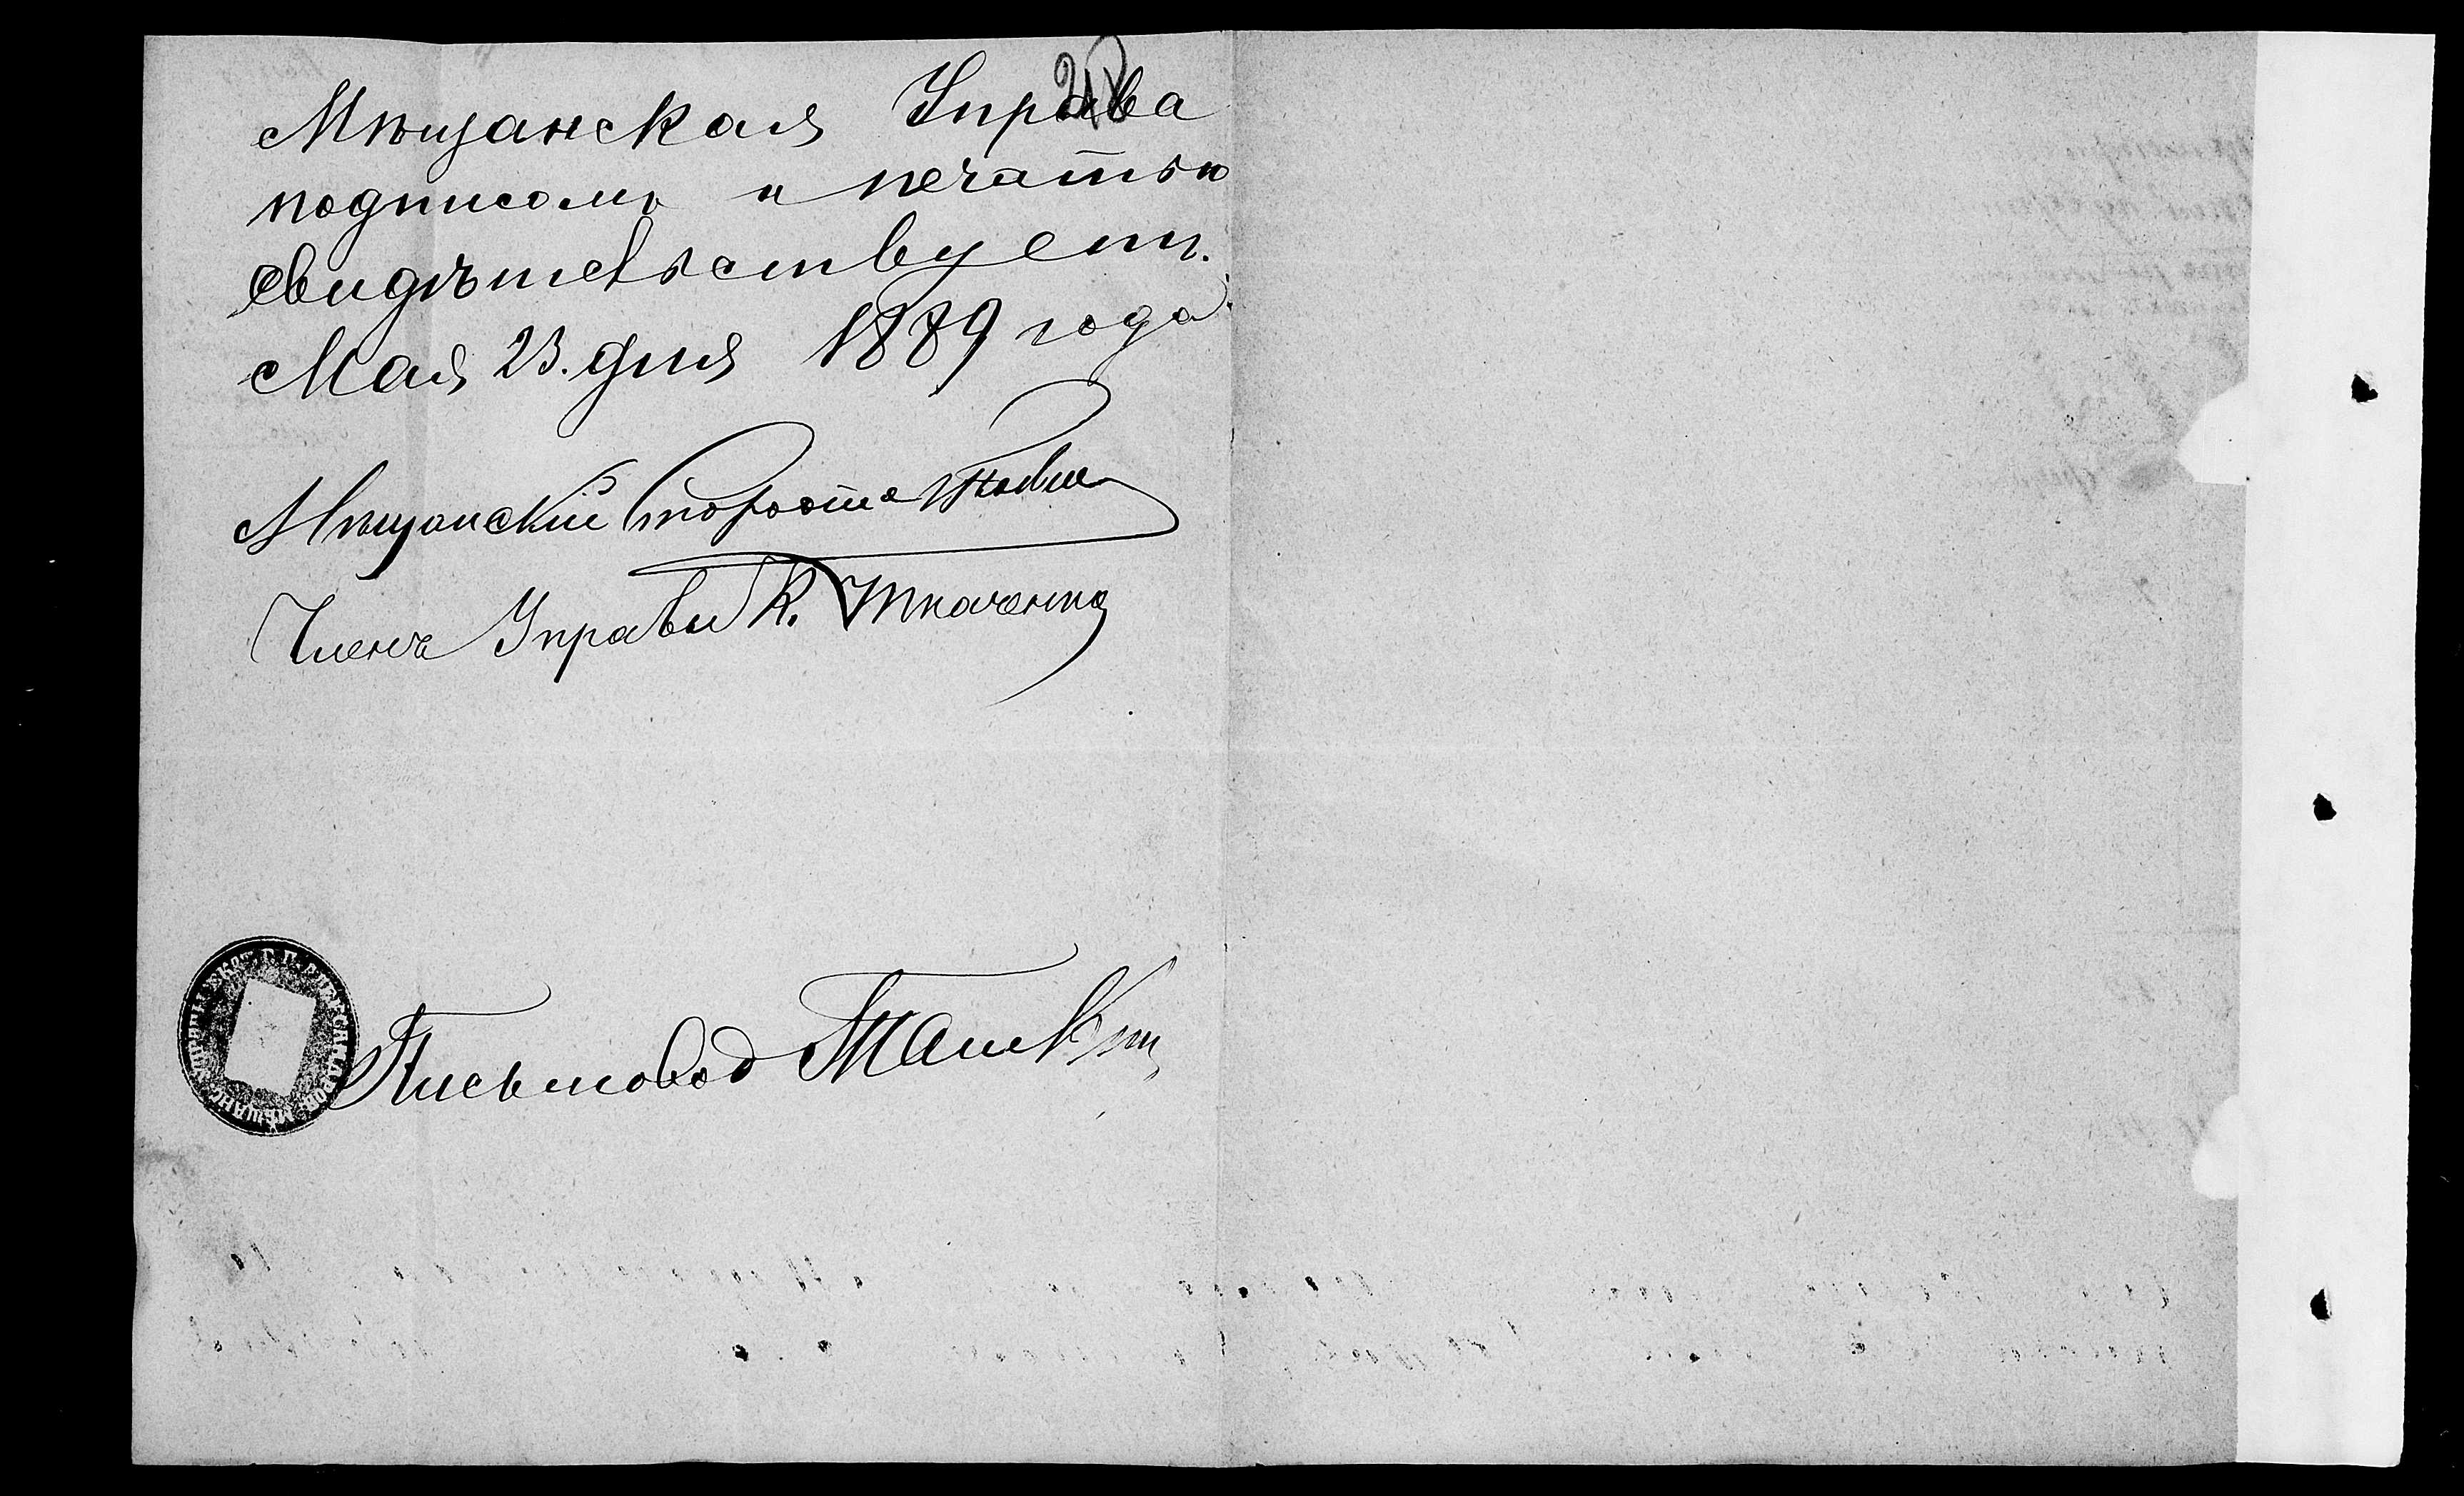 Мѣщанская Управа
подписомъ и печатью
свидѣтельствуетъ.
Мая 23. дня 1889 года
Мѣщанскій Староста
Членъ Управы К. Ткаченко
Письмовод